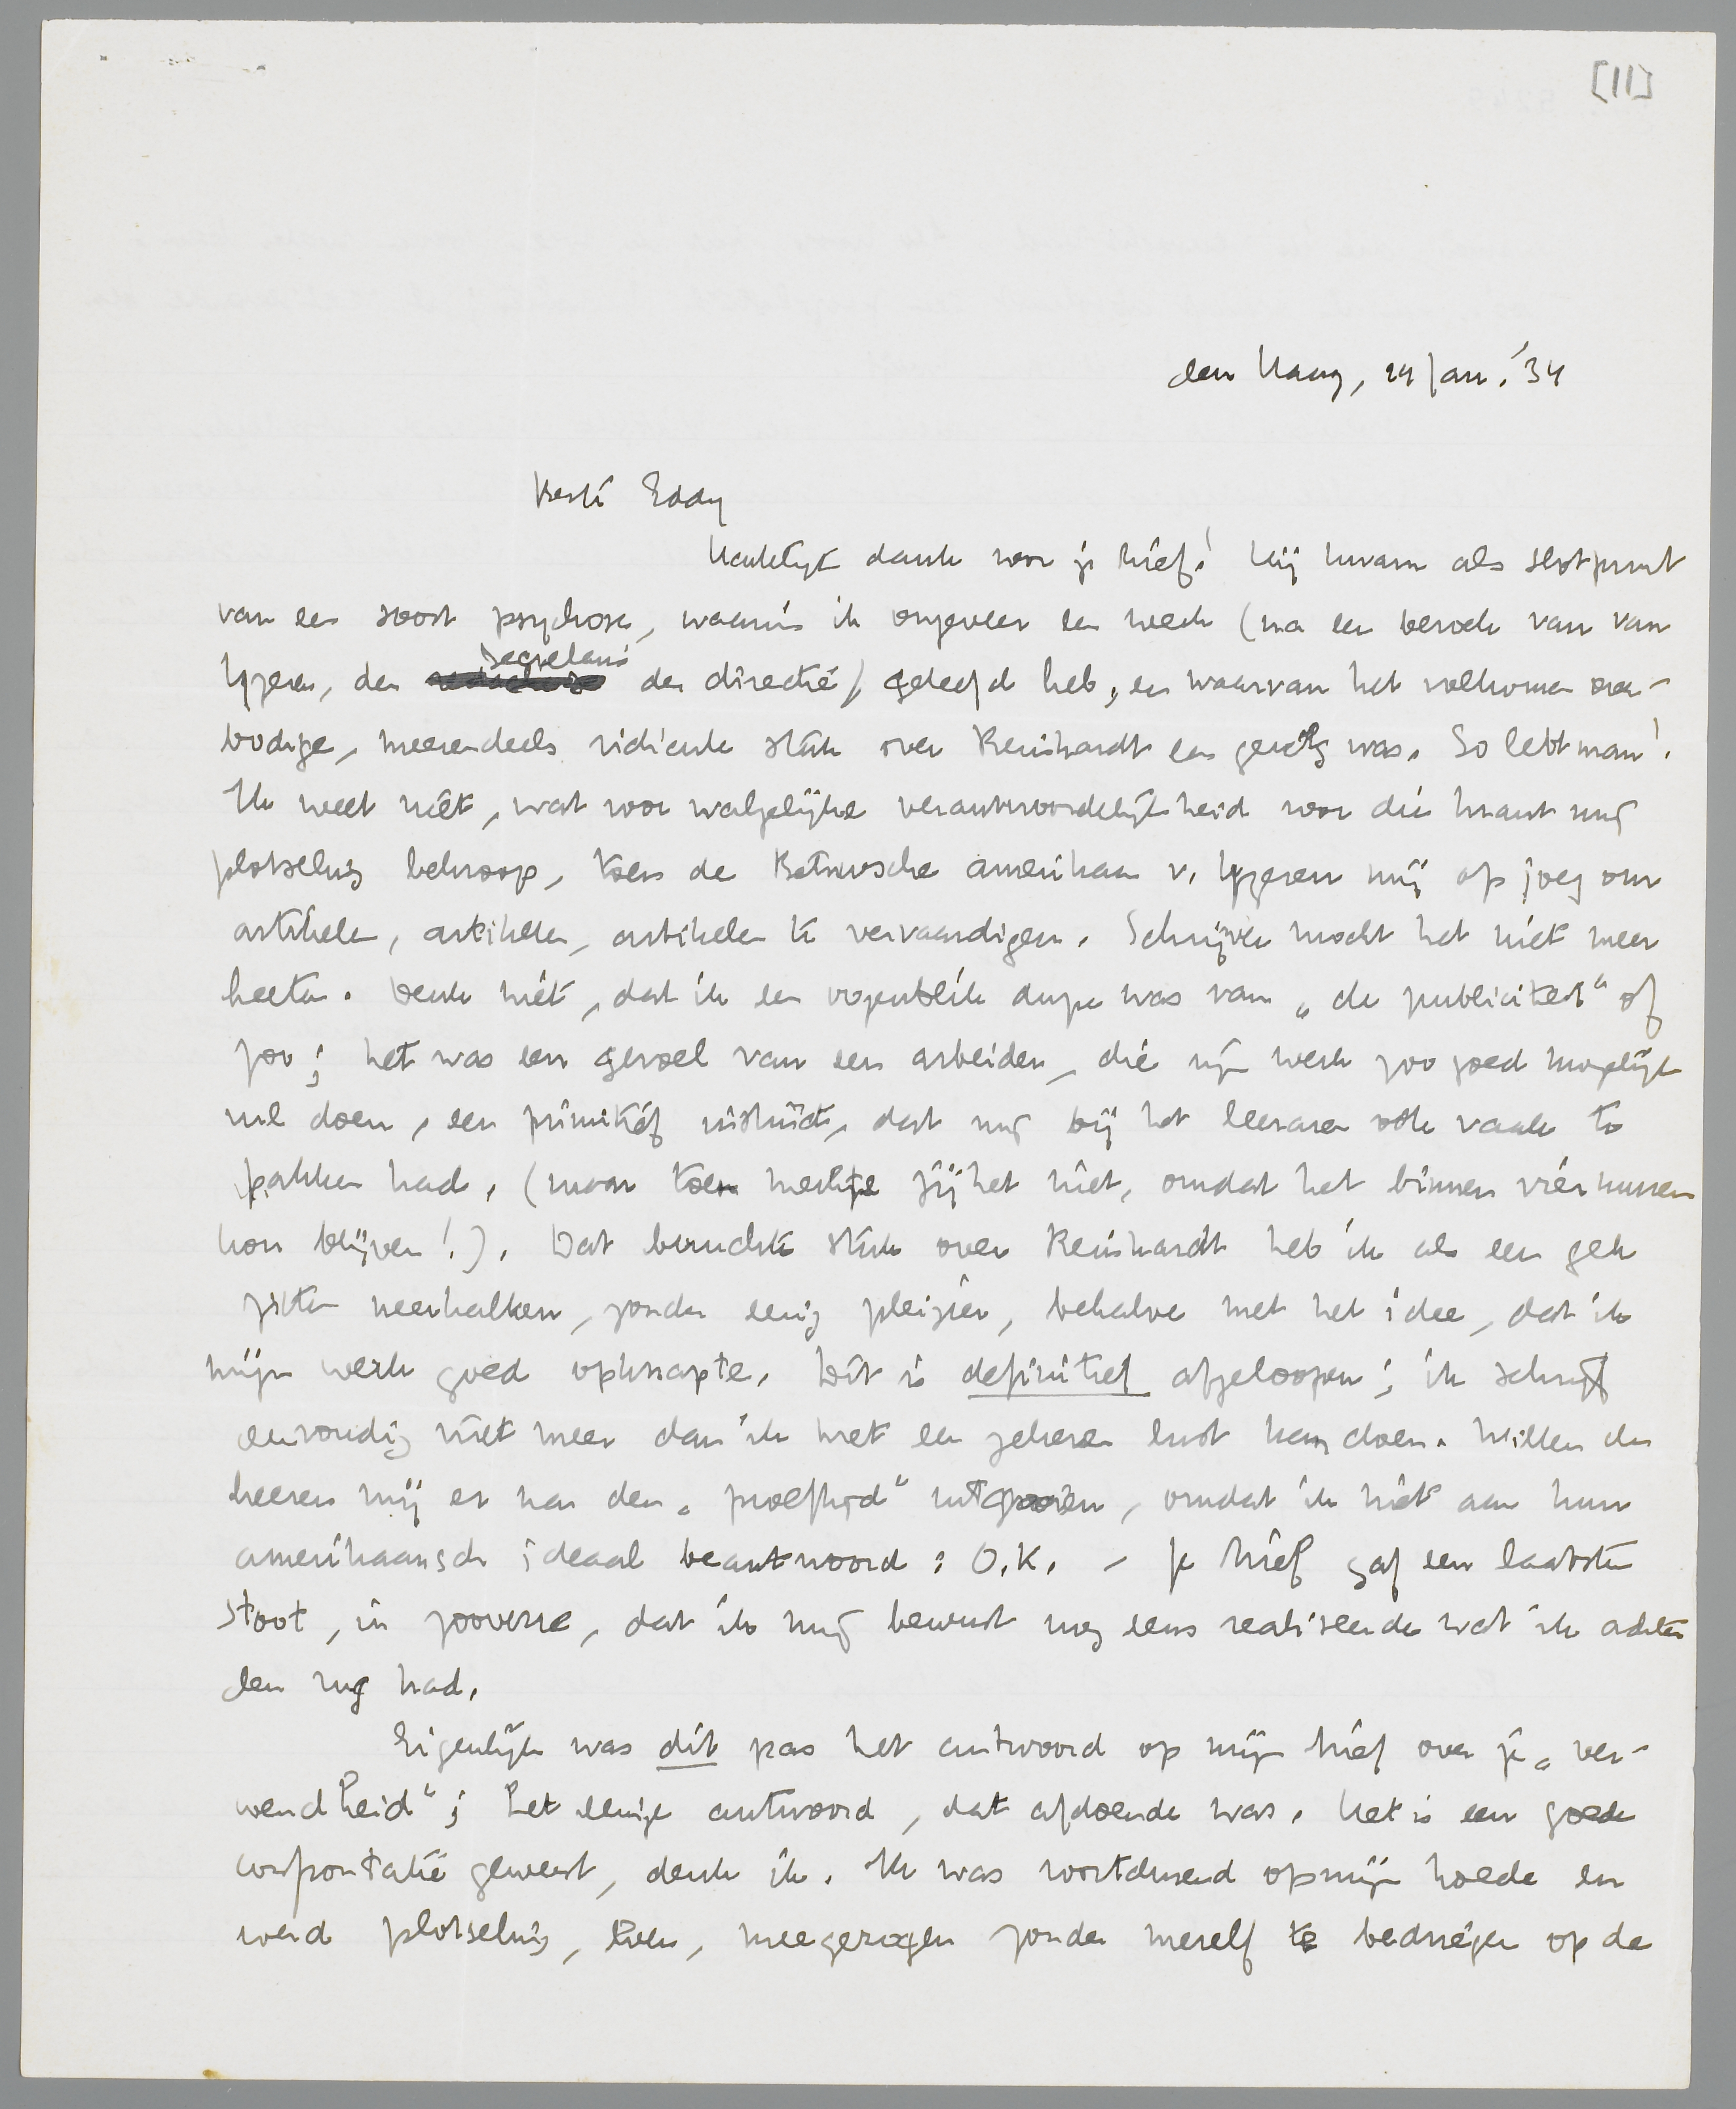 [11]
den Haag, 14 Jan. '34
Beste Eddy
Hartelijk dank voor je brief! Hij kwam als slotpunt
van een soort psychose, waarin ik ongeveer een week (na een bezoek van van
IJzeren, den secretaris der directie) geleefd heb, en waarvan het volkomen over-
bodige, meerendeels ridicule stuk over Reinhardt een gevolg was. So lebt man!
Ik weet niet, wat voor walgelijke verantwoordelijkheid voor die krant mij
plotseling bekroop, toen de Betuwsche amerikaan v. IJzeren mij op joeg om
artikelen, artikelen, artikelen te vervaardigen. Schrijven mocht het niet meer
heeten. Denk niet, dat ik een oogenblik dupe was van „de publiciteit" of
zoo; het was een gevoel van een arbeider, die zijn werk zoo goed mogelijk
wil doen, een primitief instinct, dat mij bij het leeraren ook vaak te
pakken had, (maar toen merkte jij het niet, omdat het binnen vier muren
kon blijven!). Dat beruchte stuk over Reinhardt heb ik als een gek
zitten neerkalken, zonder eenig pleizier, behalve met het idee, dat ik
mijn werk goed opknapte. Dit is definitief afgeloopen; ik schrijf
eenvoudig niet meer dan ik met een zekeren lust kan doen. Willen de
heeren mij er na den „proeftijd" uitgooien, omdat ik niet aan hun
amerikaansch ideaal beantwoord: O.K. – Je brief gaf een laatsten
stoot, in zooverre, dat ik mij bewust nog eens realiseerde wat ik achter
den rug had.
Eigenlijk was dit pas het antwoord op mijn brief over je „ver-
wendheid"; het eenige antwoord, dat afdoende was. Het is een goede
confrontatie geweest, denk ik. Ik was voortdurend op mijn hoede en
werd plotseling, even, meegezogen zonder mezelf te bedriegen op de